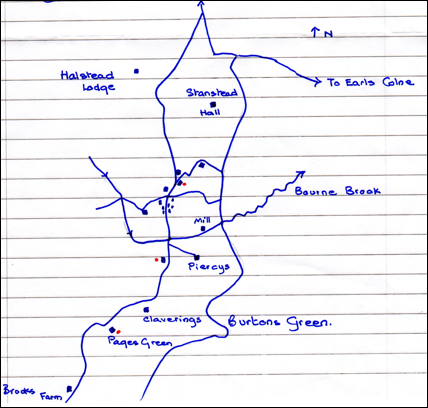 N
Halstead
Lodge
Stanstead
Hall
To Earls Colne
Bourne Brook
Mill
Piercys
Claverings
Burtons Green.
Pages Green
Brooks
Farm